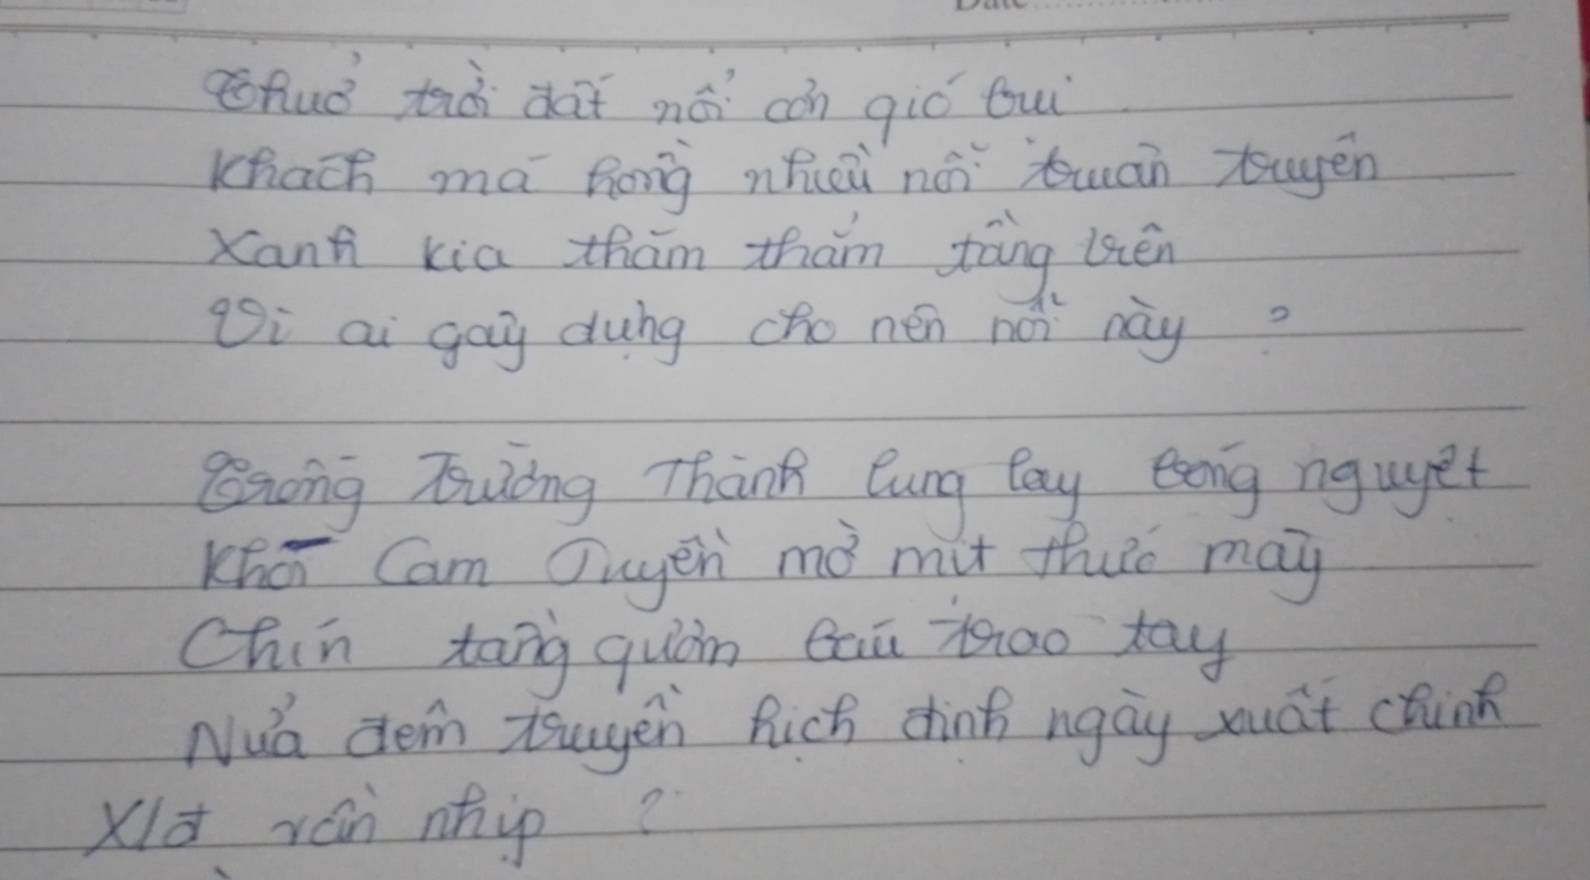 Thuở trời đất nổi cơn gió bụi
Khách má hồng nhiều nỗi truân truyên
Xanh kia thăm thẳm tầng trên
Vì ai gây dựng cho nên nỗi này ?
Trống Trường Thành lung lay bóng nguyệt
Khói Cam Tuyền mờ mịt thức mây
Chín tầng gươm báu trao tay
Nửa đêm truyền hịch định ngày xuất chinh
XĐ vần nhịp ?